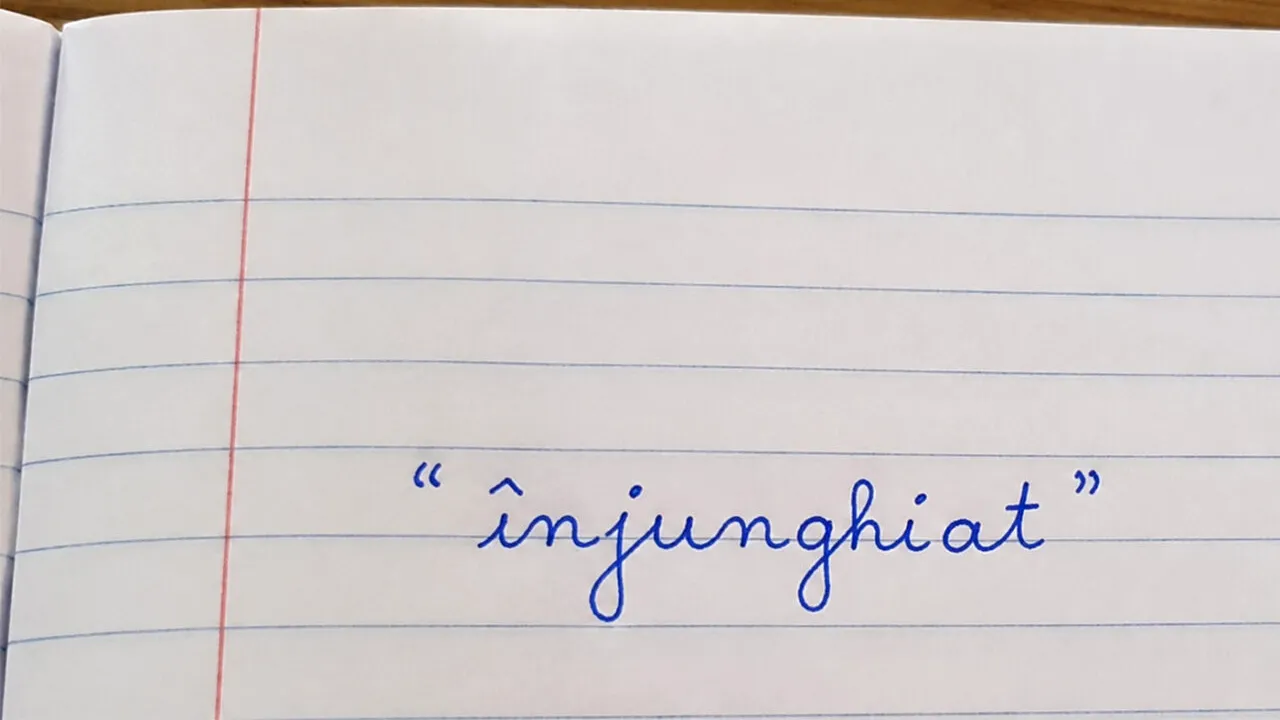 “ înjunghiat ”